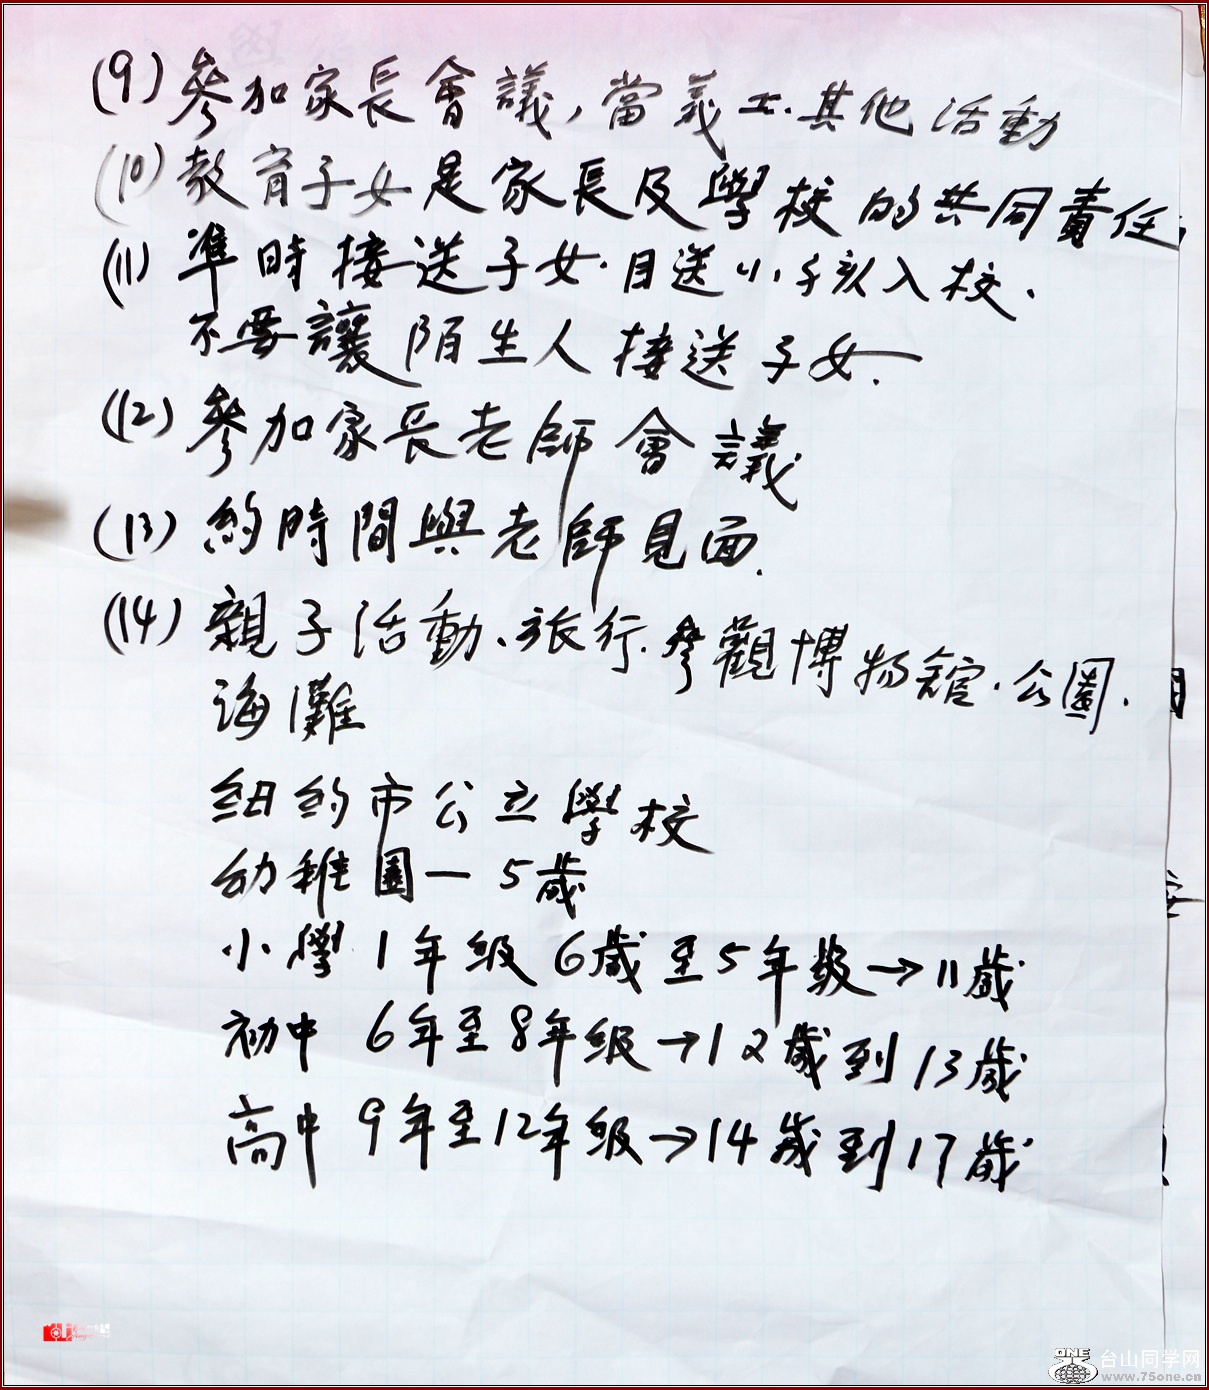 (9) 參加家長會議,當義工.其他活動
(10) 教育子女是家長及學校的共同責任,
(11) 準時接送子女.目送小孩入校.
不要讓陌生人接送子女.
(12) 參加家長老師會議
(13) 約時間與老師見面.
(14) 親子活動、旅行.參觀博物館.公園.
海灘
紐約市公立學校
幼稚園一5歲
小學 1年級 6歲至5年級→11歲
初中 6年至8年級→12歲到13歲
高中 9年至12年級→14歲到17歲
ONE
台山同学网
www.75one.cn